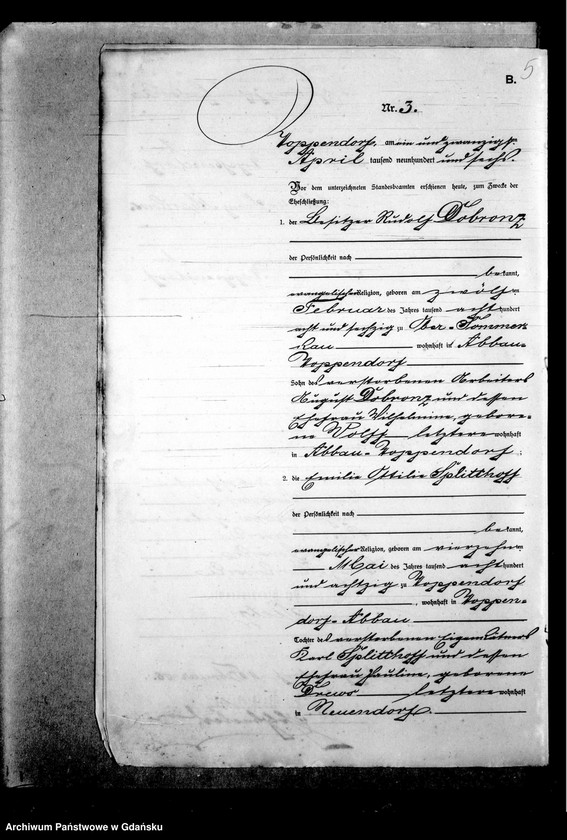 B. 5
Nr. 3.
Hoppendorf, am ein und zwanzigsten
April tausend neunhundert und sechs.
Vor dem unterzeichneten Standesbeamten erschienen heute, zum Zwecke der
Eheschließung:
1. der Besitzer Rudolf Dobronz
der Persönlichkeit nach
bekannt,
evangelischer Religion, geboren am zwölften
Februar des Jahres tausend acht hundert
acht und sechzig zu Ober-Sommer-
kau, wohnhaft in Abbau-
Hoppendorf
Sohn des verstorbenen Arbeiters
August Dobronz und dessen
Ehefrau Wilhelmine, gebore-
ne Wolff letztere wohnhaft
in Abbau-Hoppendorf;
2. die Emilie Ottilie Splitthoff
der Persönlichkeit nach
bekannt,
evangelischer Religion, geboren am vierzehnten
Mai des Jahres tausend acht hundert
und achtzig zu Hoppendorf
, wohnhaft in Hoppen-
dorf-Abbau
Tochter des verstorbenen Eigentümers
Karl Splitthoff und dessen
Ehefrau Pauline, geborene
Drews letztere wohnhaft
in Neuendorf.
Archiwum Państwowe w Gdańsku